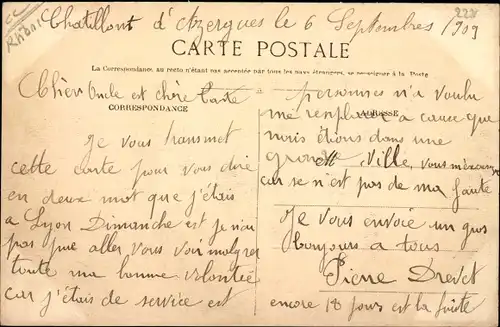 Rhône
228
Chatillont d'Azergues le 6 Septembres 1909
CARTE POSTALE
La Correspondance au recto n'étant pas acceptée par tous les pays étrangers, se renseigner à la Poste
Chèr Oncle et chère Tante
CORRESPONDANCE
Je vous transmet
cette carte pour vous dire
en deux mot que j'étais
a Lyon Dimanche et je n'ai
pas pue aller vous voir malgrer
toute ma bonne volontée
car j'étais de service et
personnes n'a voulu
me remplacer a cause que
ADRESSE
nous étions dans une
grande Ville, vous
car se n'est pas de ma faute
Je vous envoie un gros
bonjours a tous
Pierre Drevet
encore 18 jours et la fuite